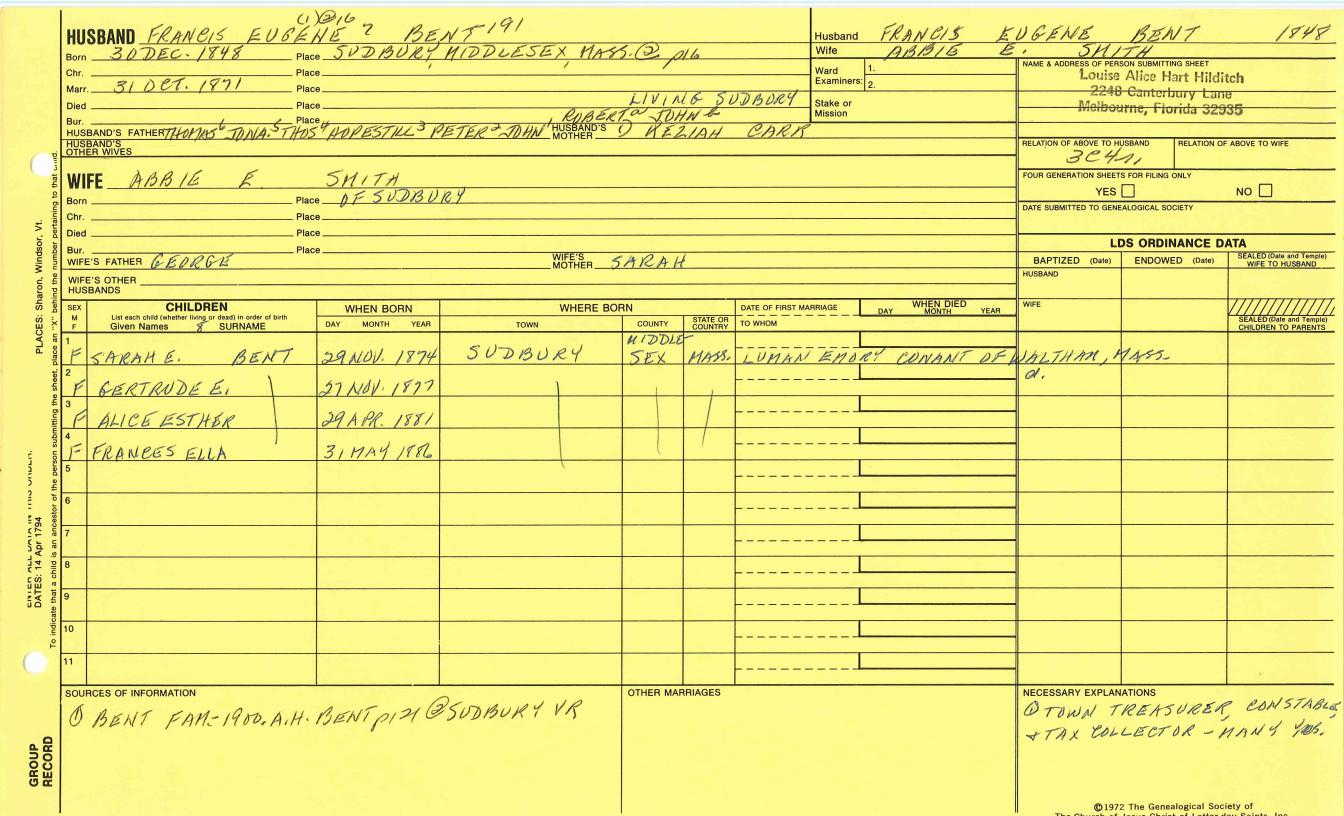 (1) ② 16
HUSBAND FRANCIS EUGENE 7 BENT 191
Born 30 DEC. 1848 Place SUDBURY, MIDDLESEX, MASS. ② p16
Chr. Place
Marr. 31 OCT. 1871 Place
Died Place LIVING SUDBURY
Bur. Place ROBERT JOHN
HUSBAND'S FATHER THOMAS 6 JONA. 5 THOS 4 HOPESTILL 3 PETER 2 JOHN 1 HUSBAND'S MOTHER KEZIAH CARR
HUSBAND'S OTHER WIVES
Husband FRANCIS EUGENE BENT 1848
Wife ABBIE E. SMITH
Ward Examiners: 1.
2.
Stake or Mission
NAME & ADDRESS OF PERSON SUBMITTING SHEET
Louise Alice Hart Hilditch
2248 Canterbury Lane
Melbourne, Florida 32935
RELATION OF ABOVE TO HUSBAND RELATION OF ABOVE TO WIFE
3C4r
FOUR GENERATION SHEETS FOR FILING ONLY
YES NO
DATE SUBMITTED TO GENEALOGICAL SOCIETY
WIFE ABBIE E. SMITH
Born Place OF SUDBURY
Chr. Place
Died Place
Bur. Place
WIFE'S FATHER GEORGE WIFE'S MOTHER SARAH
WIFE'S OTHER HUSBANDS
LDS ORDINANCE DATA
BAPTIZED (Date) ENDOWED (Date) SEALED (Date and Temple) WIFE TO HUSBAND
HUSBAND
WIFE
SEALED (Date and Temple) CHILDREN TO PARENTS
SEX M F
CHILDREN
List each child (whether living or dead) in order of birth
Given Names 8 SURNAME
WHEN BORN
DAY MONTH YEAR
WHERE BORN
TOWN COUNTY STATE OR COUNTRY
DATE OF FIRST MARRIAGE
TO WHOM
WHEN DIED
DAY MONTH YEAR
1 F SARAH E. BENT 29 NOV. 1874 SUDBURY MIDDLESEX MASS. LUMAN EMORY CONANT OF WALTHAM, MASS.
2 F GERTRUDE E. 27 NOV. 1877 d.
3 F ALICE ESTHER 29 APR. 1881
4 F FRANCES ELLA 31 MAY 1886
5
6
7
8
9
10
11
SOURCES OF INFORMATION
① BENT FAM-1900. A.H. BENT p121 ② SUDBURY VR
OTHER MARRIAGES
NECESSARY EXPLANATIONS
① TOWN TREASURER, CONSTABLE,
+ TAX COLLECTOR - MANY YRS.
©1972 The Genealogical Society of
The Church of Jesus Christ of Latter-day Saints, Inc.
PLACES: Sharon, Windsor, Vt.
ENTER ALL DATA IN THIS ORDER:
DATES: 14 Apr 1794
To indicate that a child is an ancestor of the person submitting the sheet, place an "X" behind the number pertaining to that child.
GROUP RECORD